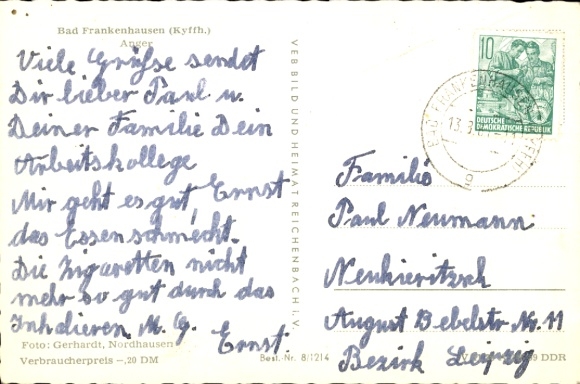 Bad Frankenhausen (Kyffh.)
Anger
Viele Grüße sendet
Dir lieber Paul u.
Deiner Familie Dein
Arbeitskollege
Ernst
Mir geht es gut,
das Essen schmeckt.
Die Zigaretten nicht
mehr so gut durch das
Inhalieren. M. G.
Ernst.
Foto: Gerhardt, Nordhausen
Verbraucherpreis -,20 DM
Best.-Nr. 8/1214
VEB BILD UND HEIMAT REICHENBACH I. V.
10
DEUTSCHE
DEMOKRATISCHE REPUBLIK
BAD FRANKENHAUSEN (KYFFH)
Familie
Paul Neumann
Neukieritzsch
August Bebelstr. Nr. 11
Bezirk Leipzig
DDR